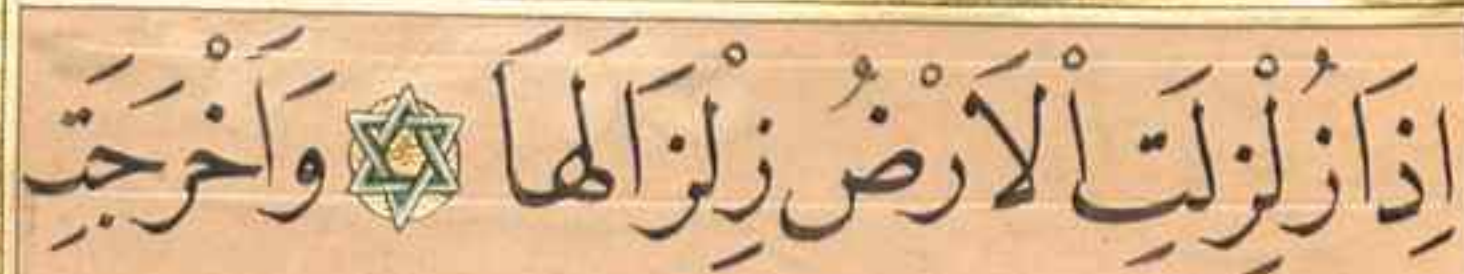 اِذَا زُلْزِلَتِ الْاَرْضُ زِلْزَالَهَا وَاَخْرَجَتِ